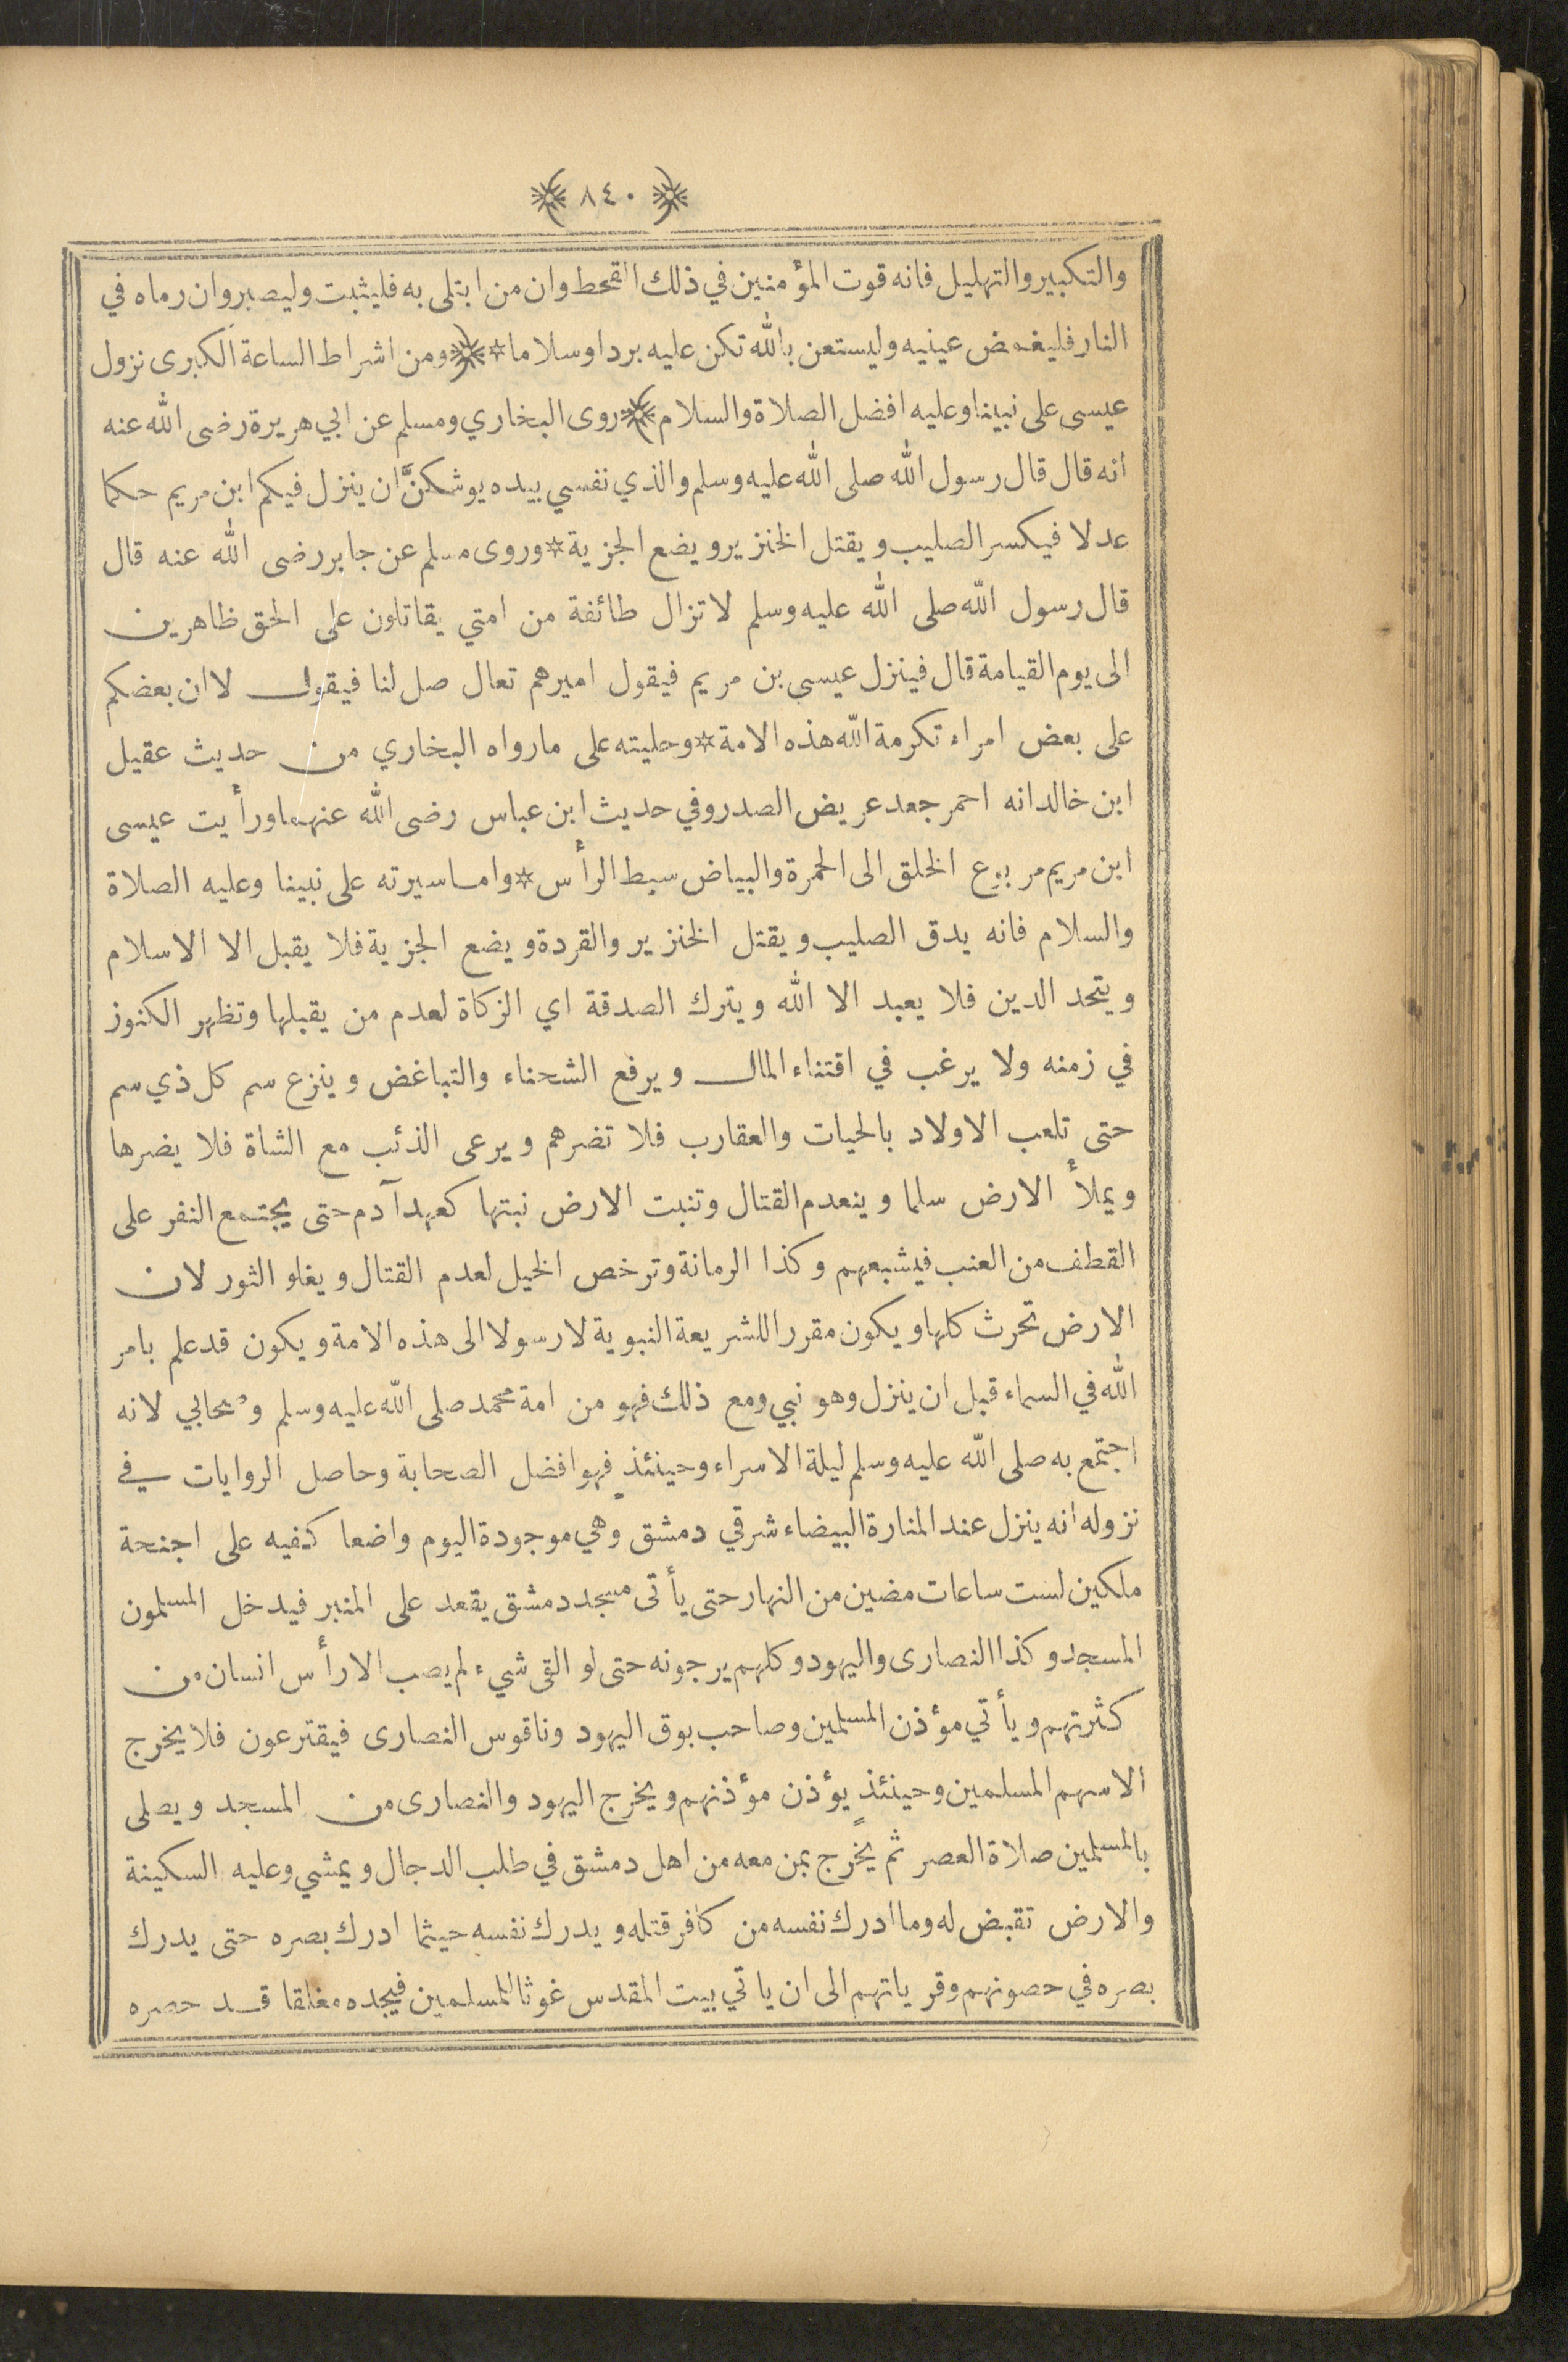 ﴿ ٨٤٠ ﴾
والتكبير والتهليل فانه قوت المؤمنين في ذلك القحط وان من ابتلى به فليثبت وليصبر وان رماه في
النار فليغمض عينيه وليستعن بالله تكن عليه بردا وسلاما * ﴿ ومن اشراط الساعة الكبرى نزول
عيسى على نبينا وعليه افضل الصلاة والسلام ﴾ روى البخاري ومسلم عن ابي هريرة رضى الله عنه
انه قال قال رسول الله صلى الله عليه وسلم والذي نفسي بيده يوشكنَّ ان ينزل فيكم ابن مريم حكما
عدلا فيكسر الصليب ويقتل الخنزير ويضع الجزية * وروى مسلم عن جابر رضى الله عنه قال
قال رسول الله صلى الله عليه وسلم لا تزال طائفة من امتي يقاتلون على الحق ظاهرين
الى يوم القيامة قال فينزل عيسى بن مريم فيقول اميرهم تعال صل لنا فيقول لا ان بعضكم
على بعض امراء تكرمة الله هذه الامة * وحليته على مارواه البخاري من حديث عقيل
ابن خالد انه احمر جعد عريض الصدر وفي حديث ابن عباس رضى الله عنهما ورأيت عيسى
ابن مريم مربوع الخلق الى الحمرة والبياض سبط الرأس * واما سيرته على نبينا وعليه الصلاة
والسلام فانه يدق الصليب ويقتل الخنزير والقردة ويضع الجزية فلا يقبل الا الاسلام
ويتحد الدين فلا يعبد الا الله ويترك الصدقة اي الزكاة لعدم من يقبلها وتظهر الكنوز
في زمنه ولا يرغب في اقتناء المال ويرفع الشحناء والتباغض وينزع سم كل ذي سم
حتى تلعب الاولاد بالحيات والعقارب فلا تضرهم ويرعى الذئب مع الشاة فلا يضرها
ويملأ الارض سلما وينعدم القتال وتنبت الارض نبتها كعهد آدم حتى يجتمع النفر على
القطف من العنب فيشبعهم وكذا الرمانة وترخص الخيل لعدم القتال ويغلو الثور لان
الارض تحرث كلها ويكون مقررا للشريعة النبوية لا رسولا الى هذه الامة ويكون قد علم بامر
الله في السماء قبل ان ينزل وهو نبي ومع ذلك فهو من امة محمد صلى الله عليه وسلم وصحابي لانه
اجتمع به صلى الله عليه وسلم ليلة الاسراء وحينئذٍ فهو افضل الصحابة وحاصل الروايات في
نزوله انه ينزل عند المنارة البيضاء شرقي دمشق وهي موجودة اليوم واضعا كفيه على اجنحة
ملكين لست ساعات مضين من النهار حتى يأتى مسجد دمشق يقعد على المنبر فيدخل المسلمون
المسجد وكذا النصارى واليهود وكلهم يرجونه حتى لو القى شيء لم يصب الا رأس انسان من
كثرتهم ويأتي مؤذن المسلمين وصاحب بوق اليهود وناقوس النصارى فيقترعون فلا يخرج
الا سهم المسلمين وحينئذٍ يؤذن مؤذنهم ويخرج اليهود والنصارى من المسجد ويصلى
بالمسلمين صلاة العصر ثم يخرج بمن معه من اهل دمشق في طلب الدجال ويمشي وعليه السكينة
والارض تقبض له وما ادرك نفسه من كافر قتله ويدرك نفسه حيثما ادرك بصره حتى يدرك
بصره في حصونهم وقرياتهم الى ان ياتي بيت المقدس غوثا للمسلمين فيجده مغلقا قد حصره